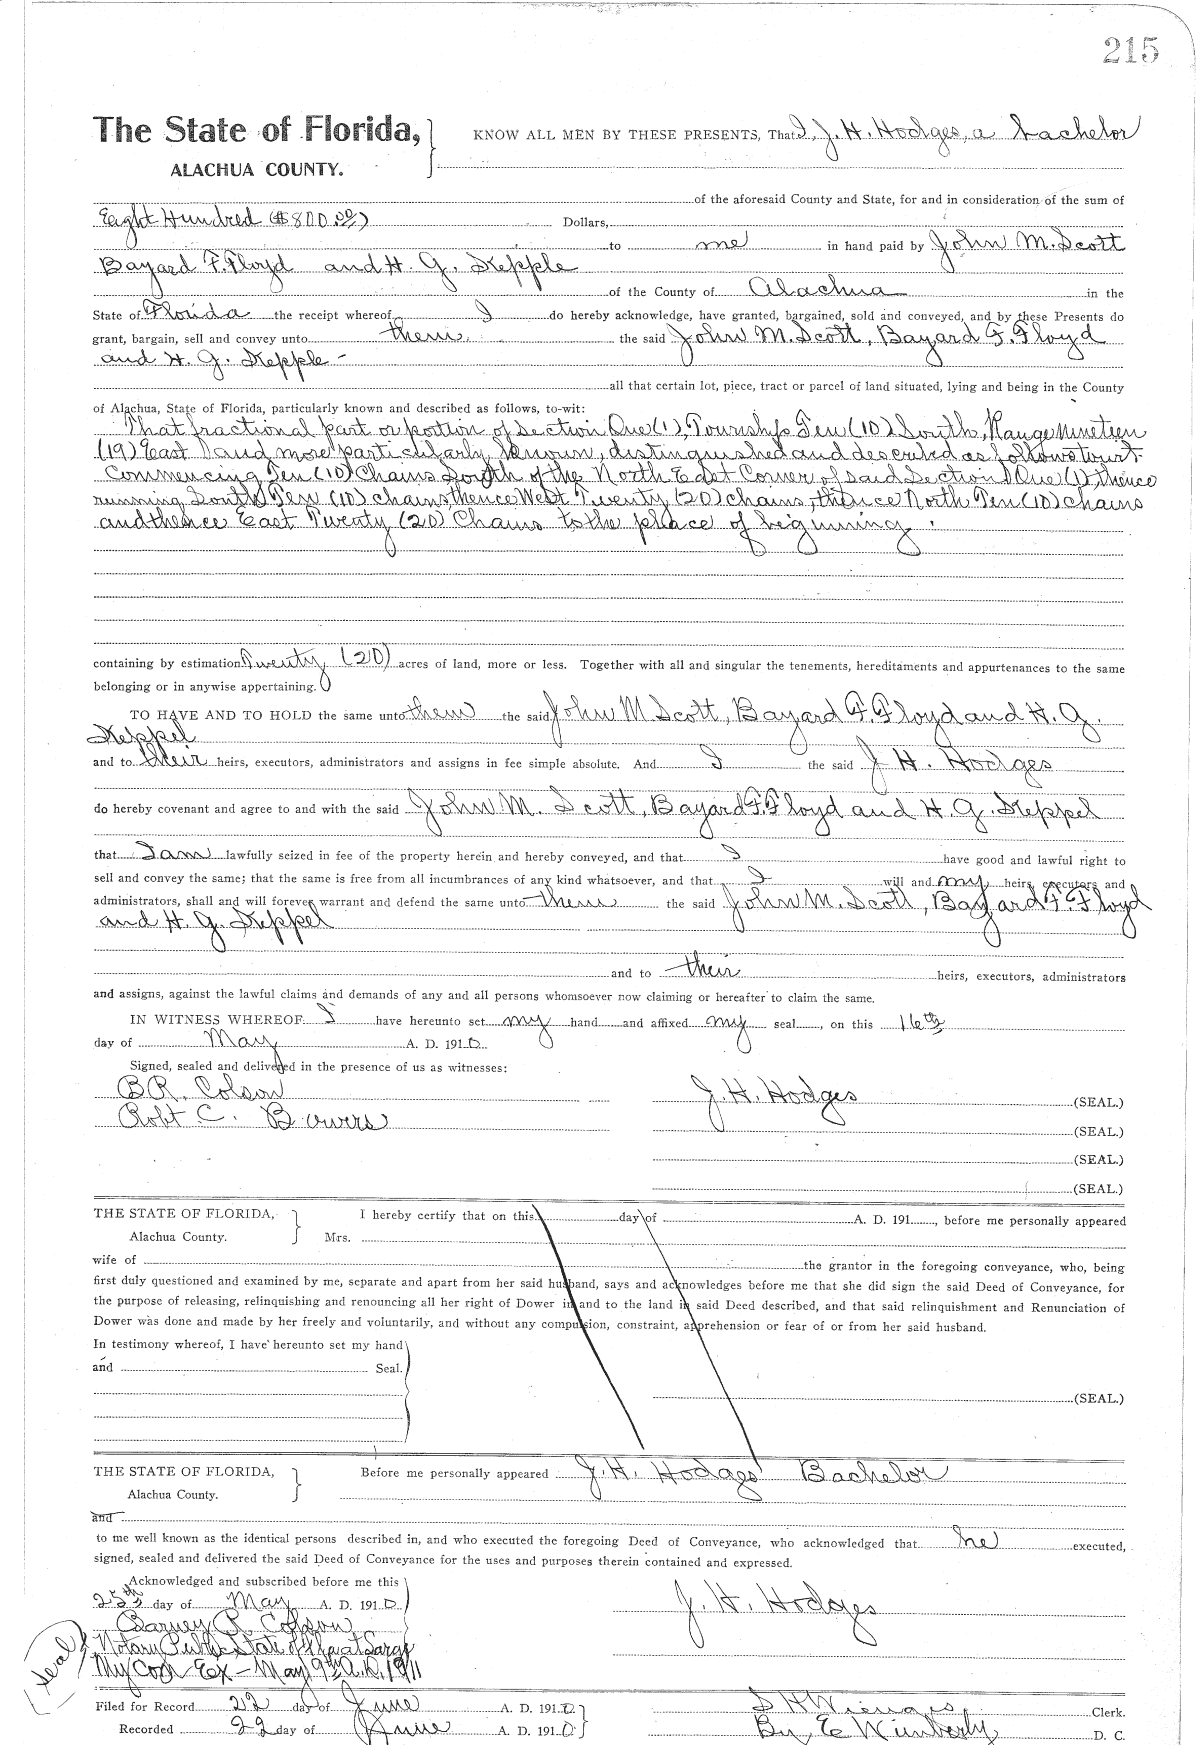 215
The State of Florida, KNOW ALL MEN BY THESE PRESENTS, That I, J. H. Hodges, a bachelor
ALACHUA COUNTY.
of the aforesaid County and State, for and in consideration of the sum of
Eight Hundred ($800.00) Dollars,
to me in hand paid by John M. Scott
Bayard F. Floyd and H. G. Kepple
of the County of Alachua in the
State of Florida the receipt whereof I do hereby acknowledge, have granted, bargained, sold and conveyed, and by these Presents do
grant, bargain, sell and convey unto them, the said John M. Scott, Bayard F. Floyd
and H. G. Kepple -
all that certain lot, piece, tract or parcel of land situated, lying and being in the County
of Alachua, State of Florida, particularly known and described as follows, to-wit:
That fractional part or portion of Section One (1), Township Ten (10) South, Range Nineteen
(19) East and more particularly known, distinguished and described as follows towit:
Commencing Ten (10) Chains South of the North East Corner of said Section One (1) thence
running South Ten (10) chains thence West Twenty (20) chains, thence North Ten (10) chains
and thence East Twenty (20) Chains to the place of beginning.
containing by estimation Twenty (20) acres of land, more or less. Together with all and singular the tenements, hereditaments and appurtenances to the same
belonging or in anywise appertaining.
TO HAVE AND TO HOLD the same unto them the said John M Scott, Bayard F. Floyd and H. G.
Keppel
and to their heirs, executors, administrators and assigns in fee simple absolute. And I the said J H. Hodges
do hereby covenant and agree to and with the said John M. Scott, Bayard F. Floyd and H. G. Keppel
that I am lawfully seized in fee of the property herein and hereby conveyed, and that I have good and lawful right to
sell and convey the same; that the same is free from all incumbrances of any kind whatsoever, and that I will and my heirs, executors and
administrators, shall and will forever warrant and defend the same unto them the said John M. Scott, Bayard F. Floyd
and H. G. Keppel
and to their heirs, executors, administrators
and assigns, against the lawful claims and demands of any and all persons whomsoever now claiming or hereafter to claim the same.
IN WITNESS WHEREOF I have hereunto set my hand and affixed my seal, on this 16th
day of May A. D. 1910.
Signed, sealed and delivered in the presence of us as witnesses:
B R. Colson J. H. Hodges (SEAL.)
Robt C. Bowers (SEAL.)
(SEAL.)
(SEAL.)
THE STATE OF FLORIDA, I hereby certify that on this day of A. D. 191, before me personally appeared
Alachua County. Mrs.
wife of the grantor in the foregoing conveyance, who, being
first duly questioned and examined by me, separate and apart from her said husband, says and acknowledges before me that she did sign the said Deed of Conveyance, for
the purpose of releasing, relinquishing and renouncing all her right of Dower in and to the land in said Deed described, and that said relinquishment and Renunciation of
Dower was done and made by her freely and voluntarily, and without any compulsion, constraint, apprehension or fear of or from her said husband.
In testimony whereof, I have hereunto set my hand
and Seal.
(SEAL.)
THE STATE OF FLORIDA, Before me personally appeared J. H. Hodges Bachelor
Alachua County.
and
to me well known as the identical persons described in, and who executed the foregoing Deed of Conveyance, who acknowledged that he executed,
signed, sealed and delivered the said Deed of Conveyance for the uses and purposes therein contained and expressed.
Acknowledged and subscribed before me this
25th day of May A. D. 1910 J. H. Hodges
Barney R. Colson
Notary Public State of Fla at Large
(Seal) My Com Ex - May 9th A.D. 1911
Filed for Record 22 day of June A. D. 1910 S H Wienges Clerk.
Recorded 22 day of June A. D. 1910 By E Wimberly D. C.